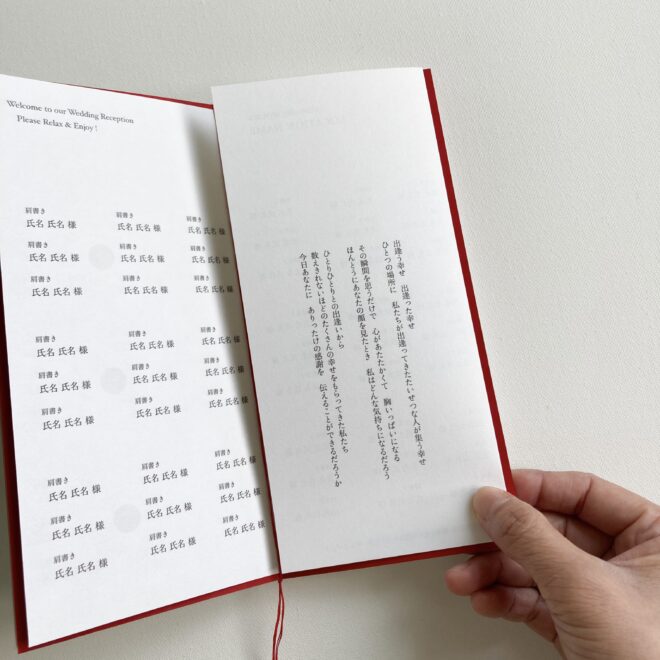 Welcome to our Wedding Reception
Please Relax & Enjoy !
肩書き 肩書き 肩書き
氏名 氏名 様 氏名 氏名 様 氏名 氏名 様
肩書き 肩書き 肩書き
氏名 氏名 様 氏名 氏名 様 氏名 氏名 様
肩書き 肩書き 肩書き
氏名 氏名 様 氏名 氏名 様 氏名 氏名 様
肩書き 肩書き 肩書き
氏名 氏名 様 氏名 氏名 様 氏名 氏名 様
肩書き 肩書き 肩書き
氏名 氏名 様 氏名 氏名 様 氏名 氏名 様
肩書き 肩書き 肩書き
氏名 氏名 様 氏名 氏名 様 氏名 氏名 様
肩書き 肩書き 肩書き
氏名 氏名 様 氏名 氏名 様 氏名 氏名 様
肩書き 肩書き 肩書き
氏名 氏名 様 氏名 氏名 様 氏名 氏名 様
肩書き 肩書き 肩書き
氏名 氏名 様 氏名 氏名 様 氏名 氏名 様
出逢う幸せ　出逢った幸せ
ひとつの場所に　私たちが出逢ってきたたいせつな人が集う幸せ
その瞬間を思うだけで　心があたたかくて　胸いっぱいになる
ほんとうにあなたの顔を見たとき　私はどんな気持ちになるだろう
ひとりひとりとの出逢いから
数えきれないほどのたくさんの幸せをもらってきた私たち
今日あなたに　ありったけの感謝を　伝えることができるだろうか